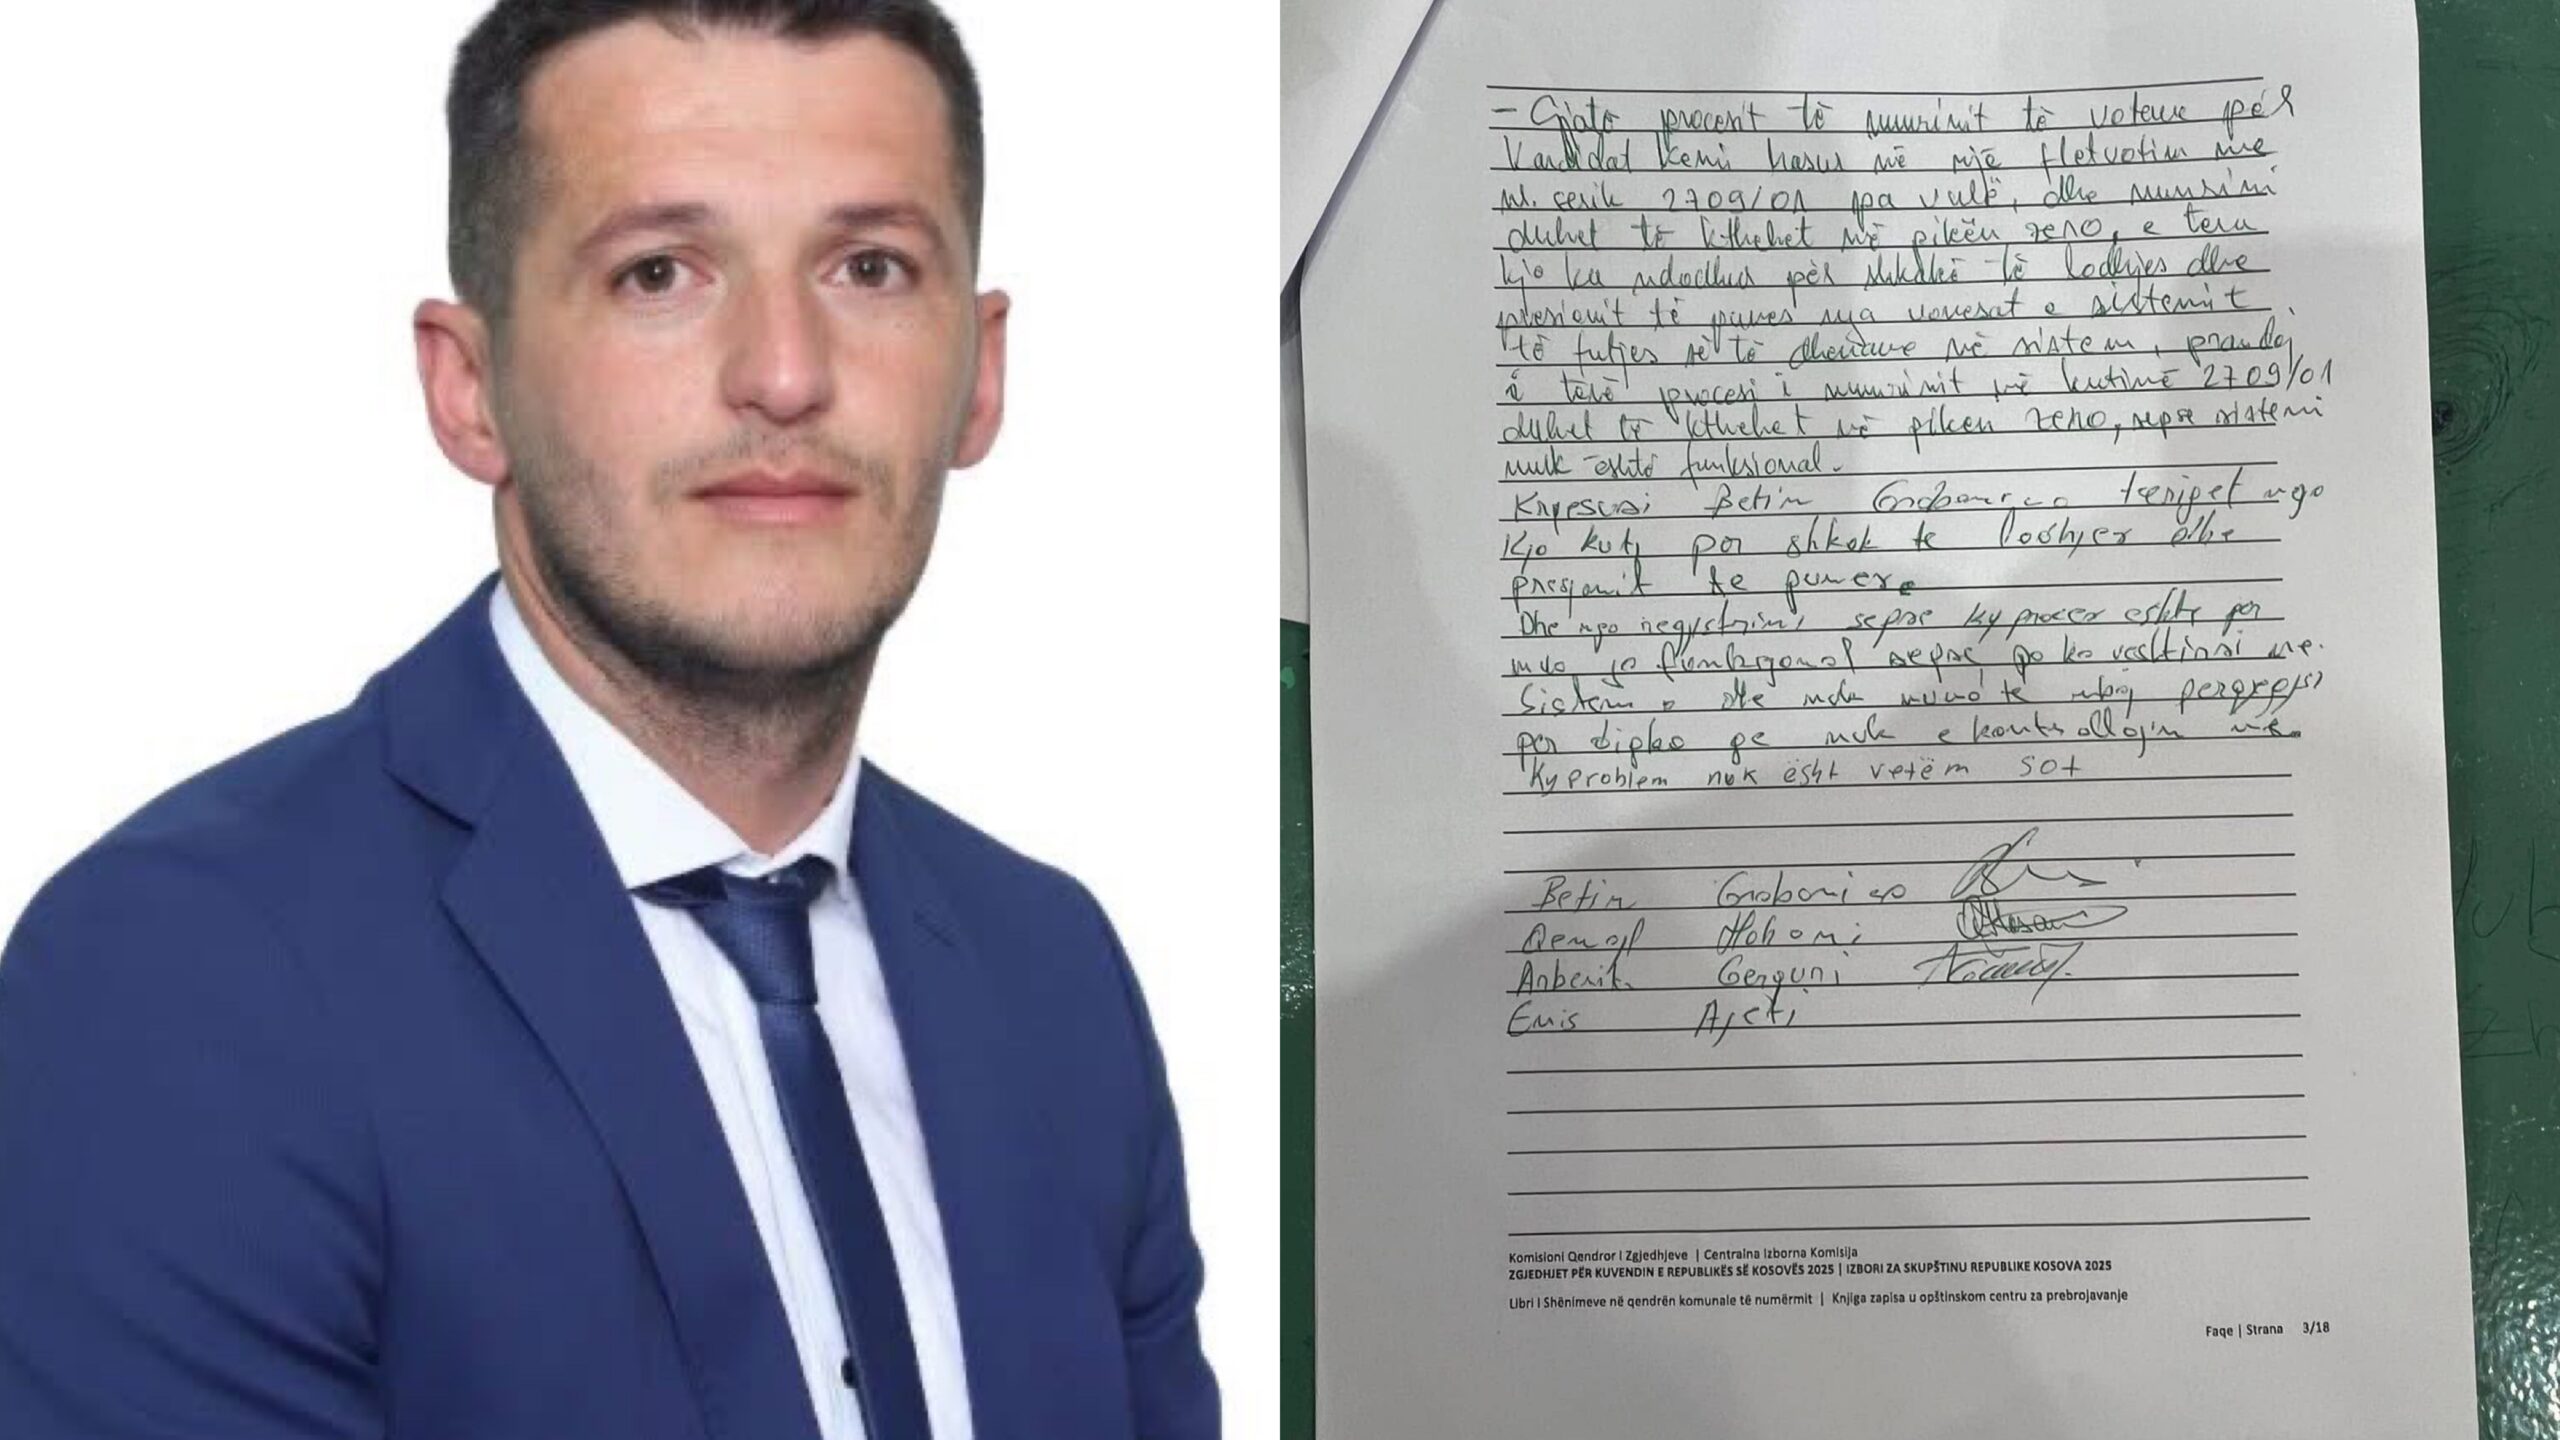 - Gjatë procesit të numrimit të voteve për
Kandidat kemi hasur në një fletvotim me
nr. serik 2709/01 pa vulë, dhe numrimi
duhet të kthehet në pikën zero, e tera
kjo ka ndodhur për shkakë të lodhjes dhe
presionit të punes nga vonesat e sistemit
të futjes së të dhenave në sistem, prandaj
i tërë procesi i numrimit në kutinë 2709/01
duhet të kthehet në piken zero, sepse sistemi
nuk është funksional.
Kryesusi Betim terijet nga
Kjo kuti por shkak te lodhjes dhe
presjonit te punes
Dhe nga regjistrimi sepse ky proces eshte per
mua jo funksjonal sepse po ka veshtirsi me
Sistem dhe nuk muna te mbaj pergjegjsi
per diçka qe nuk e kontrollojm ne.
Ky problem nuk ësht vetëm sot
Betim
Arberit Gerguri
Enis Ajeti
Komisioni Qendror i Zgjedhjeve | Centralna Izborna Komisija
ZGJEDHJET PËR KUVENDIN E REPUBLIKËS SË KOSOVËS 2025 | IZBORI ZA SKUPŠTINU REPUBLIKE KOSOVA 2025
Libri i Shënimeve në qendrën komunale të numërmit | Knjiga zapisa u opštinskom centru za prebrojavanje
Faqe | Strana 3/18